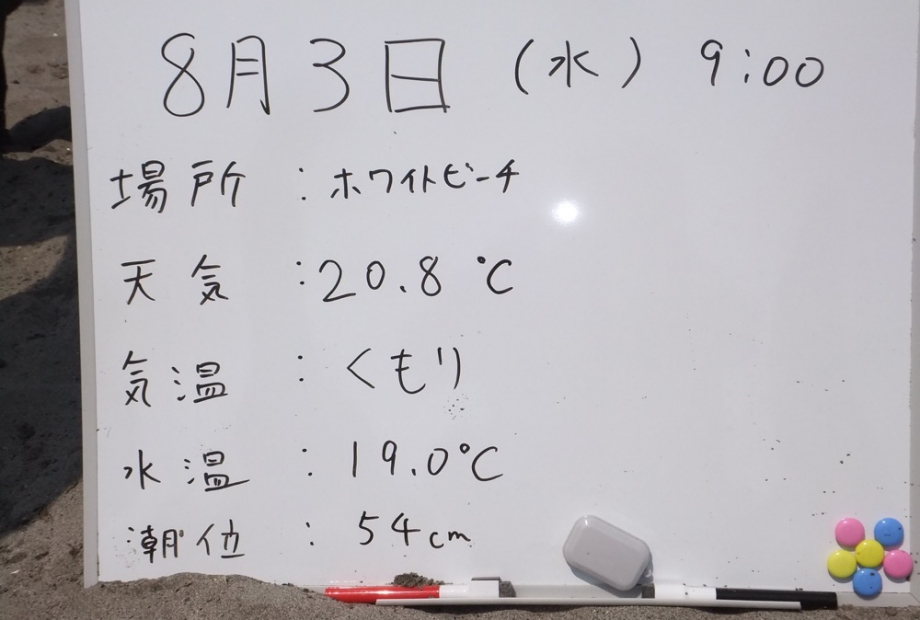 8月3日 (水) 9:00
場所 : ホワイトビーチ
天気 : 20.8 ℃
気温 : くもり
水温 : 19.0℃
潮位 : 54cm